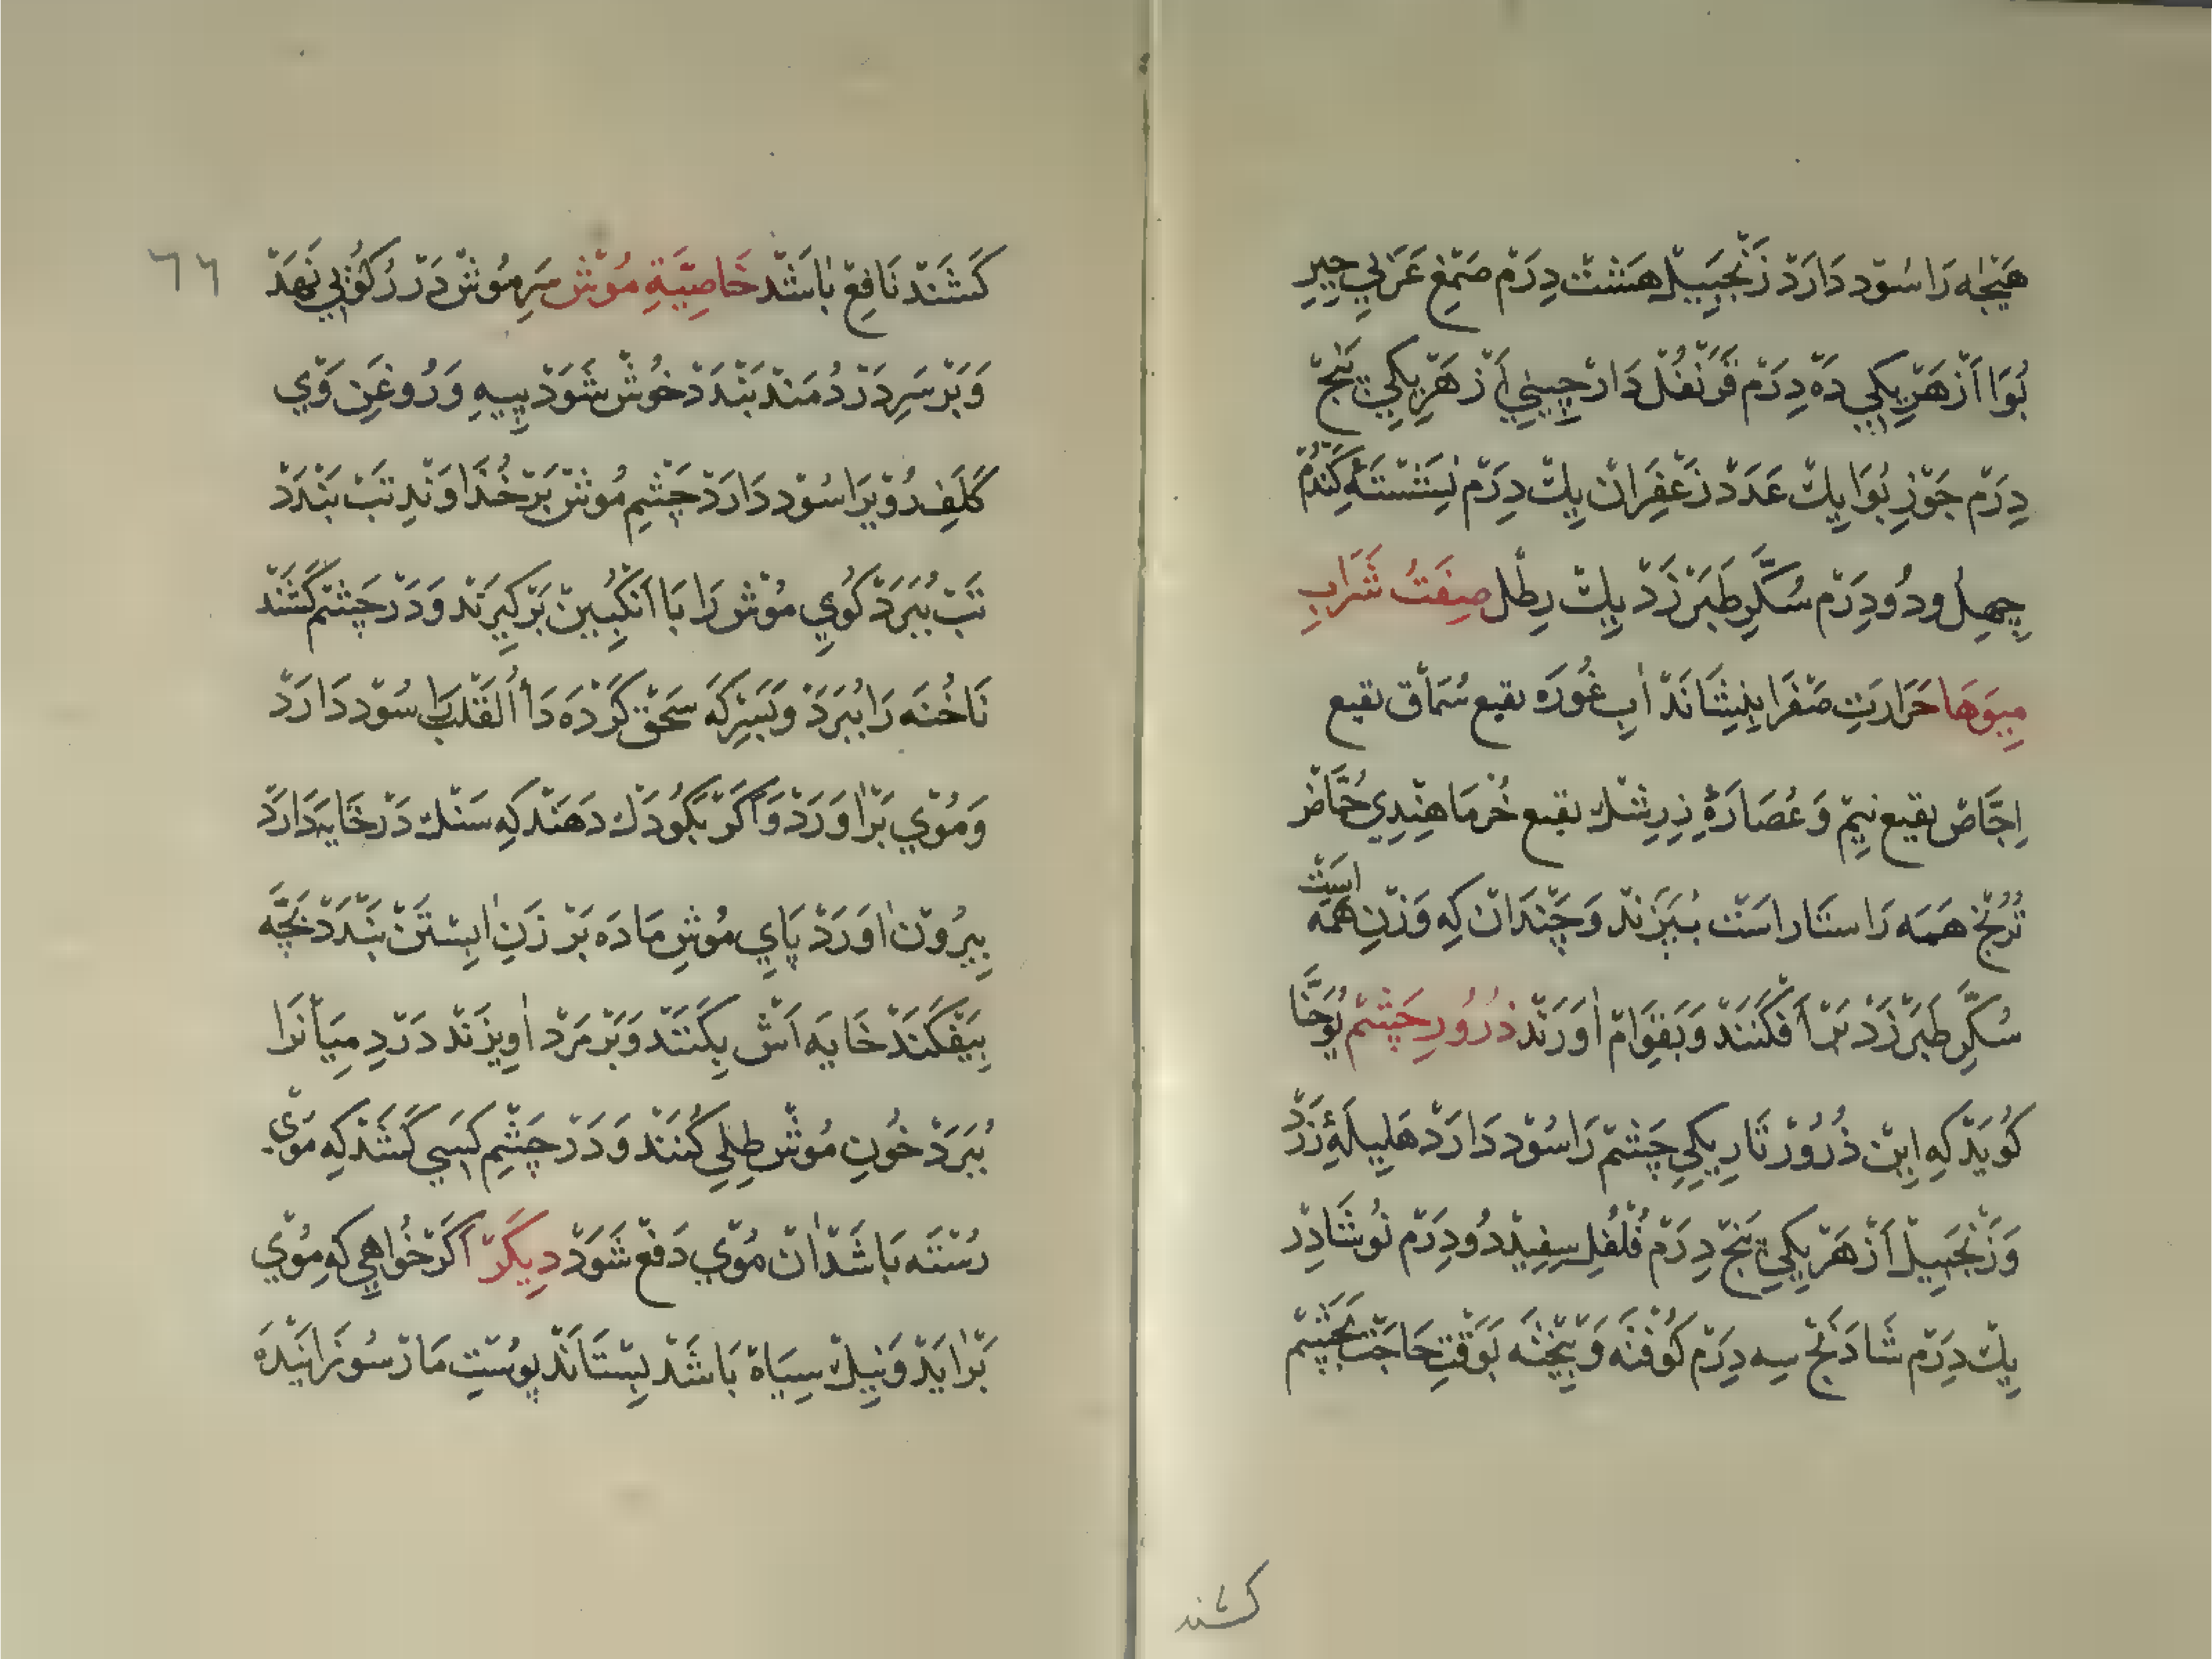 هَیْجٰه رَا سُوْد دَارَدْ زَنْجَبِیْل هَشْتْ دِرَمْ صَمْغِ عَرَبِي خِیرِ
بُوَا اَزْ هَرْیِکِي دَهْ دِرَمْ قَرَنْفُلْ دَارْچِینِي اَزْ هَرْیِکِي پَنْجْ
دِرَمْ جَوْزِ بُوَا یِكْ عَدَدْ زَعْفِرَانْ یِكْ دِرَمْ نِشَسْتَهٔ کَنْدُمْ
چِهِلْ ودُودِرَمْ سُکَّرِ طَبَرْزَدْ یِكْ رِطْل صِفَتُ شَرَابِ
مِیوَهَا حَرَارَتِ صَفْرَا بِنِشَانَدْ اٰبِ غُورَه نقیع سُمَاقْ نقیع
اِجَّاصْ نقیع نِیمْ وَعُصَارَهٔ زِرِشْك نقیع خُرْمَا هِنْدِي حُمَّاضِ
تُرُنْجْ هَمَه رَاسْتَارَاسَتْ بِپَزَنْد وَچَنْدَانْ کِه وَزْنِ هَمَه اَسْتْ
سُکَّرِ طَبَرْزَدْ بَرْ اَفْکَنَنَدْ وَبَقِوَامْ اٰوَرَنَد ذَرُورِ چَشْمْ یُوحَنَّا
کُوَیَدْ کِه اِیْن ذُرُورْ تَارِیکِيِ چَشْمْ رَا سُوْد دَارَدْ هَلِیلَهٔ زَرْدْ
وَزَنْجَبِیلْ اَزْ هَرْیِکِي پَنْجْ دِرَمْ فُلْفُلِ سِفِیْدْ دُودِرَمْ نُوشَادِرْ
یِكْ دِرَمْ شَادَنْجْ سِه دِرَمْ کُوفْتَه وَبِیْخْتَه بَوَقْتِ حَاجَتْ بَچَشْمْ
کشند
٦٦
کَشَنَدْ نَافِعْ بَاشَدْ خَاصِیَّةِ مُوْشْ سَرِ مُوْشْ دَرْ رُکُوْیِي نَهَدْ
وَبَرْ سَرِ دَرْدُمَنْد بَنْدَدْ خُوْشْ شَوَدْ پِیهِ وَرُوغَنِ وَيْ
کَلَفِ رُوْیرَا سُوْد دَارَدْ چَشْمِ مُوْشْ بَرْ خُذَاوَنْدِ تَبْ بَنْدَدْ
تَبْ بُبَرَدْ کُوِي مُوْشْ رَا بَا اَنْکُبِینْ بَرْکِیرَنَد وَدَرْ چَشْمْ کَشَنَدْ
نَاخُنَه رَا بُبَرَدْ وَبَسِرْکَه سَحْقْ کَرْدَه دَاْ اُلْقَلْبْ رَا سُوْد دَارَدْ
وَمُوْي بَرْ اٰوَرَدْ وَاَکَرْ بَکُودَكْ دَهَنْد کِه سَنْك دَرْ خَایَه دَارَدْ
بِیرُوْنْ اٰوَرَدْ پَايِ مُوْشِ مَادَه بَرْ زَنِ اٰبِسْتَنْ بَنْدَدْ بَچَّه
بِیَفْکَنَدْ خَایَه اَشْ بِکَنَنَدْ وَبَرْ مَرْدْ اٰوِیزَنَدْ دَرْدِ مِیَانْرَا
بُبَرَدْ خُوْنِ مُوْشْ طِلِي کُنَنَدْ وَدَرْ چَشْمِ کَسِي کَشَنَدْ کِه مُوْي
رُسْتَه بَاشَدْ اٰنْ مُوْي دَفْعْ شَوَدْ دِیکَرْ اَکَرْ خُوَاهِي کِه مُوْي
بَرْ اٰیَدْ وَنِیكْ سِیَاهْ بَاشَدْ بِسْتَانَدْ پُوسْتِ مَارْ سُوزَانِیْدَه